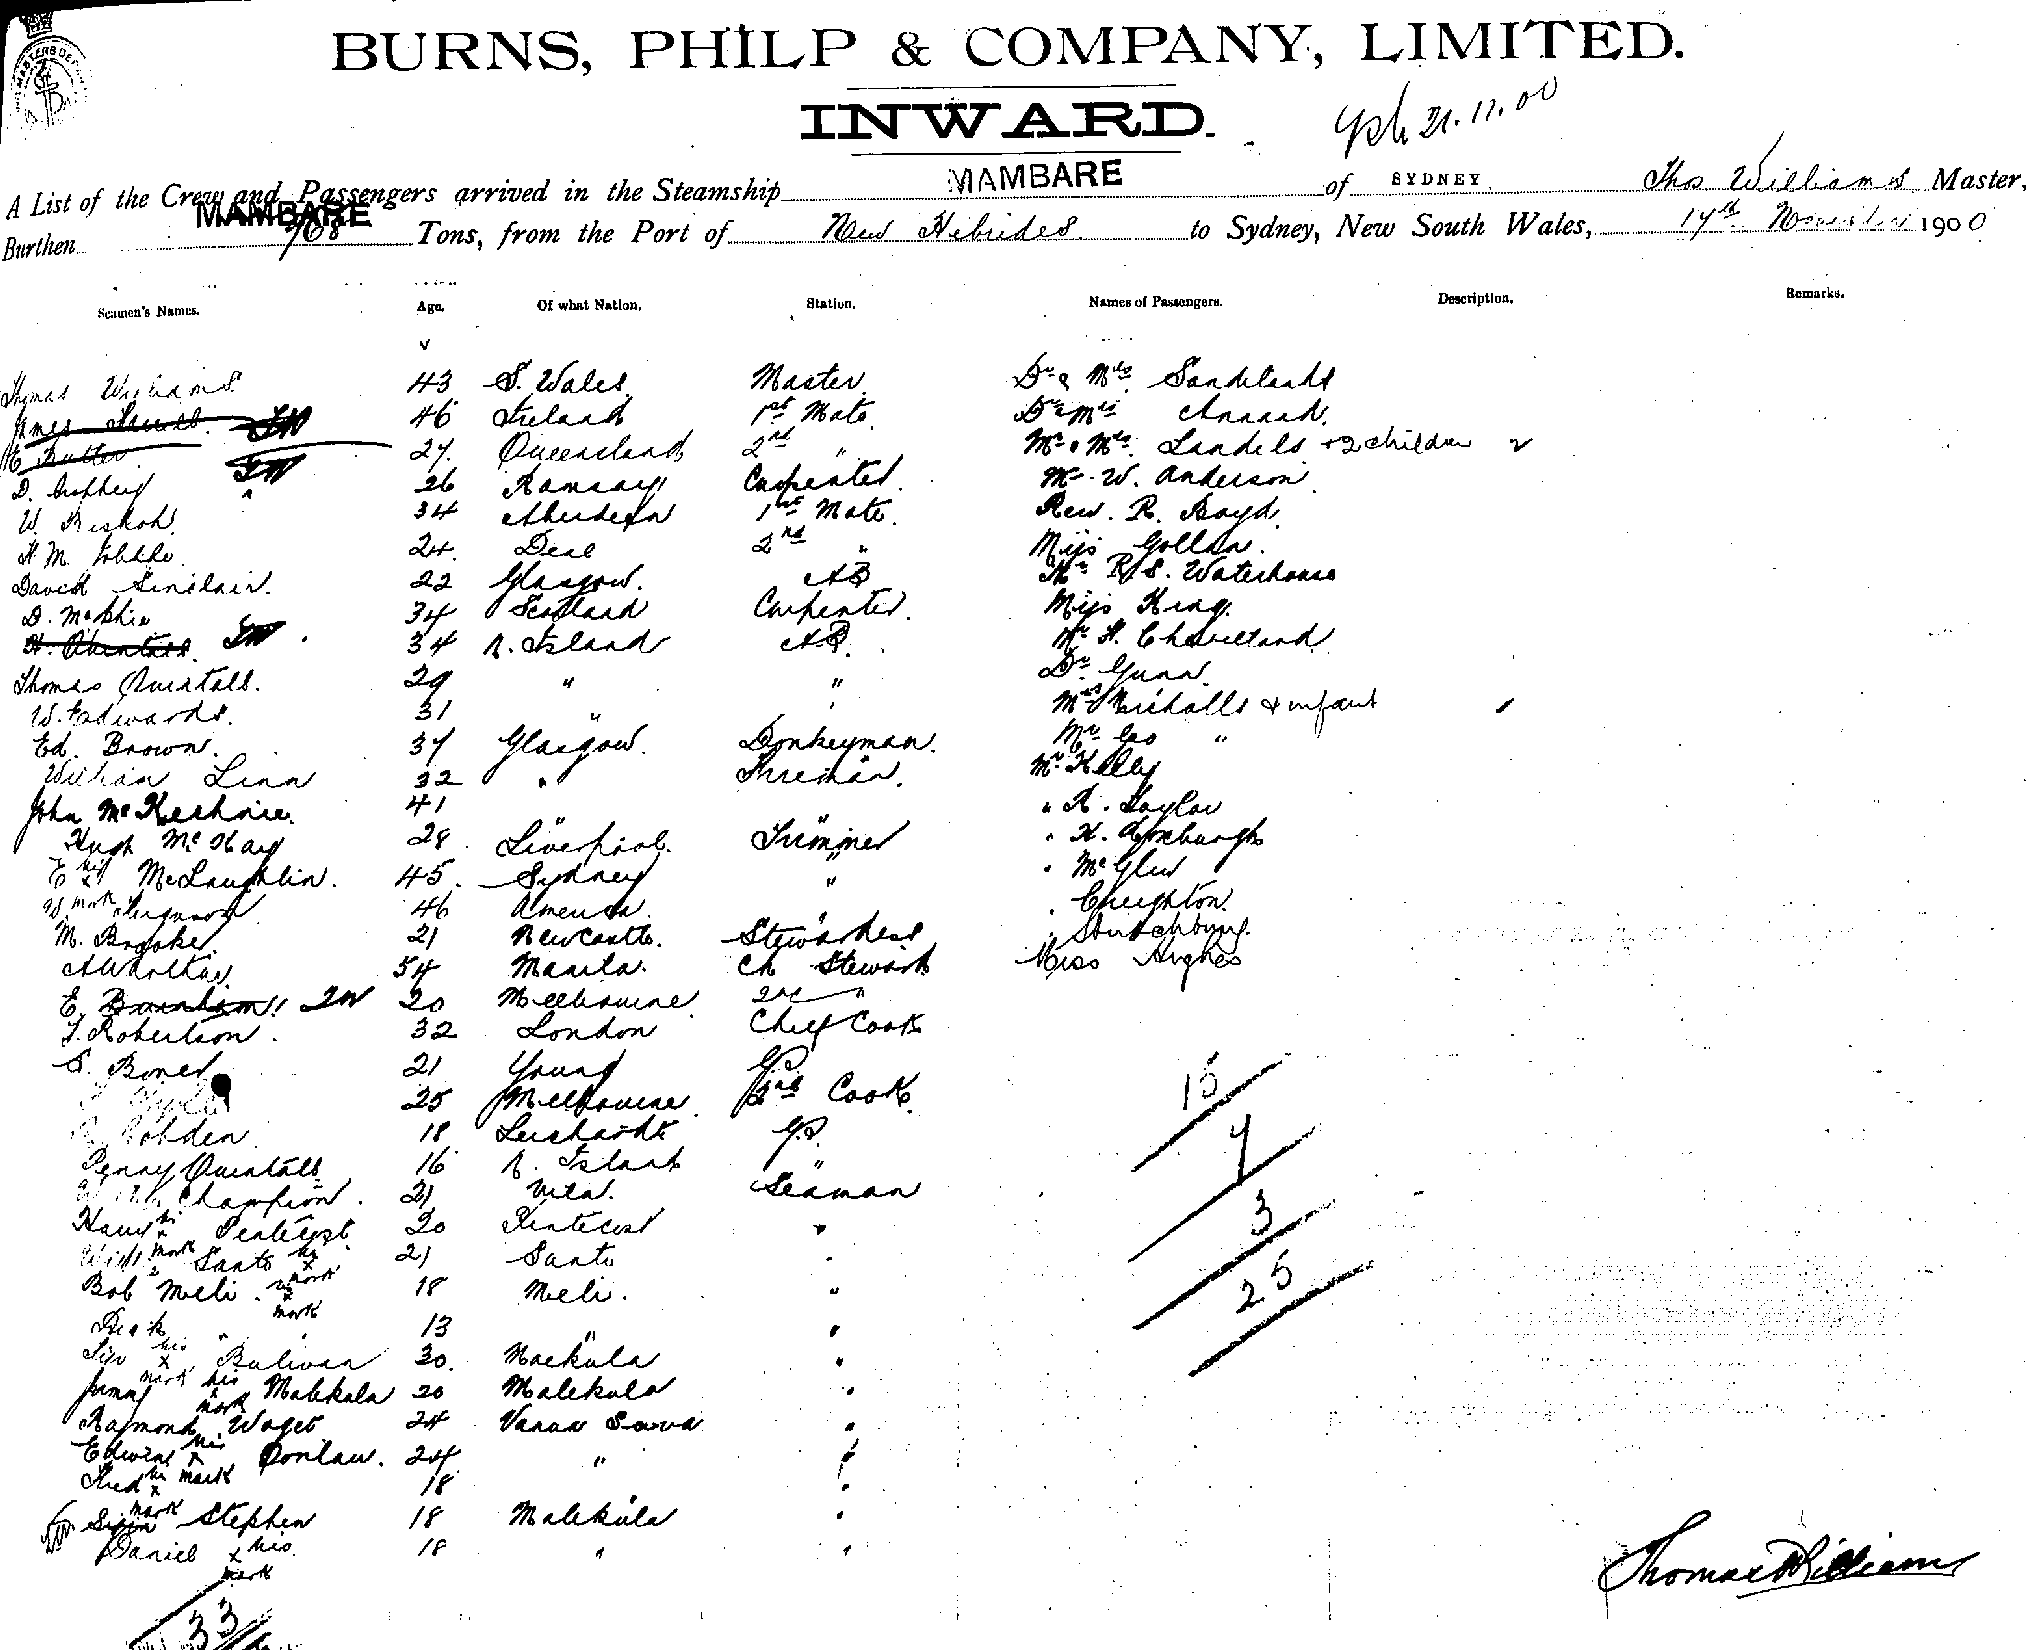 BURNS, PHILP & COMPANY, LIMITED.
INWARD.
21.11.00
A List of the Crew and Passengers arrived in the Steamship MAMBARE of SYDNEY Thos Williams Master,
Burthen MAMBARE 768 Tons, from the Port of New Hebrides to Sydney, New South Wales, 17th November 1900
Seamen's Names. Age. Of what Nation. Station. Names of Passengers. Description. Remarks.
Thomas Williams 43 S. Wales Master Dr & Mrs Sandilands
James 46 Ireland 1st Mate Dr Mrs Annand
E. Rutter 27 Queensland 2nd " Mr & Mrs Landels + 2 children
D. 26 Ramsay Carpenter Mr W. Anderson
W. 34 Aberdeen 1st Mate Rev. R. Boyd
H. M. 24 Deal 2nd " Miss Gollan
David Sinclair 22 Glasgow AB Mr R/S. Waterhouse
D. McPhie 34 Scotland Carpenter Miss King
H. Quintall 34 N. Island AB Mr H.
Thomas Quintall 29 " " Dr Gunn
W. Edwards 31 " Mrs Nicholls & infant
Ed. Brown 37 Glasgow Donkeyman Mr Geo "
William Linn 32 " Fireman Mr Kelly
John Mc 41 " " " R. Taylor
Hugh McKay 28 Liverpool Trimmer " H. Roxburgh
E his x mark McLaughlin 45 Sydney " "
W. Ferguson 46 America " " Creighton
M. Brooke 21 Newcastle Stewardess "
54 Manila Ch Steward Miss Hughes
E. 20 Melbourne 2nd "
J. Robertson 32 London Chief Cook
S. 21 Young
25 Melbourne 2nd Cook
Cobden 18 Leichardt G.S.
Penny Quintall 16 N. Island "
Champion 21 Vila Seaman
Harry his x mark Pentecost 20 Pentecost "
Will Santo his x mark 21 Santo "
Bob Meli his x mark 18 Meli "
Dick " " 13 " "
his x mark 30
Jimmy his x mark Malekula 20 Malekula "
Raymond 24 Vanua Lava "
his x mark 24 " "
Fred his x mark 18 " "
Stephen 18 Malekula "
Daniel his x mark 18 " "
15
7
3
25
Thomas Williams
33